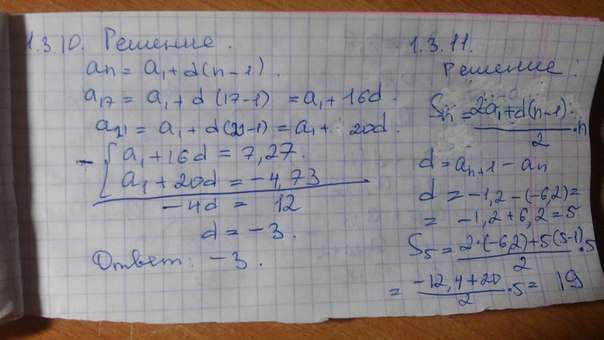 1.3.10. Решение.
an = a₁ + d(n-1).
a₁₇ = a₁ + d(17-1) = a₁ + 16d.
a₂₁ = a₁ + d(21-1) = a₁ + 20d.
- { a₁ + 16d = 7,27.
a₁ + 20d = -4,73
-4d = 12
d = -3.
Ответ: -3.
1.3.11.
Решение:
Sn = (2a₁ + d(n-1))/2 · n
d = an+1 - an
d = -1,2 - (-6,2) =
= -1,2 + 6,2 = 5
S₅ = (2·(-6,2) + 5(5-1))/2 · 5
= (-12,4 + 20)/2 · 5 = 19